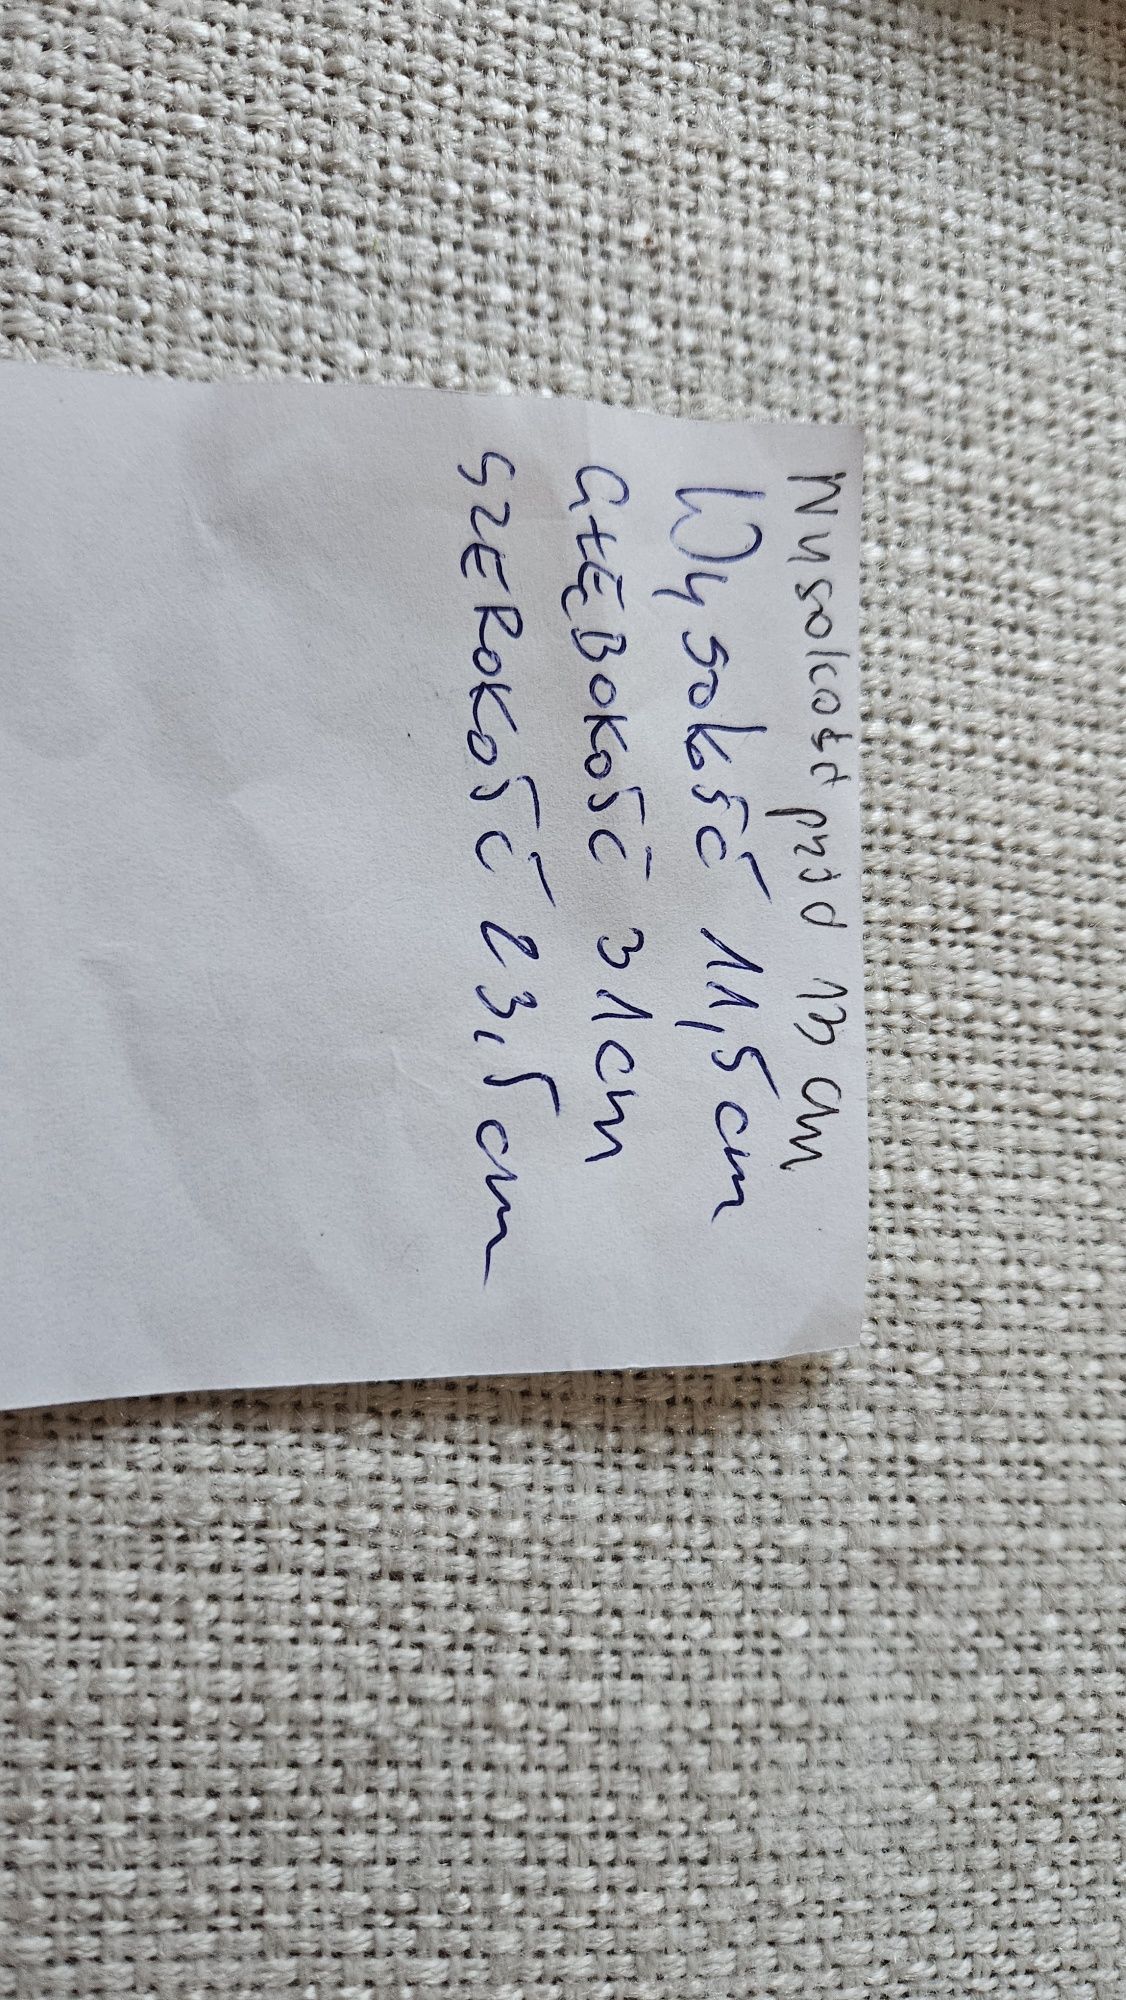 Wysokość przy 19 cm
Wysokość 11,5 cm
GŁĘBOKOŚĆ 31 cm
SZEROKOŚĆ 23,5 cm